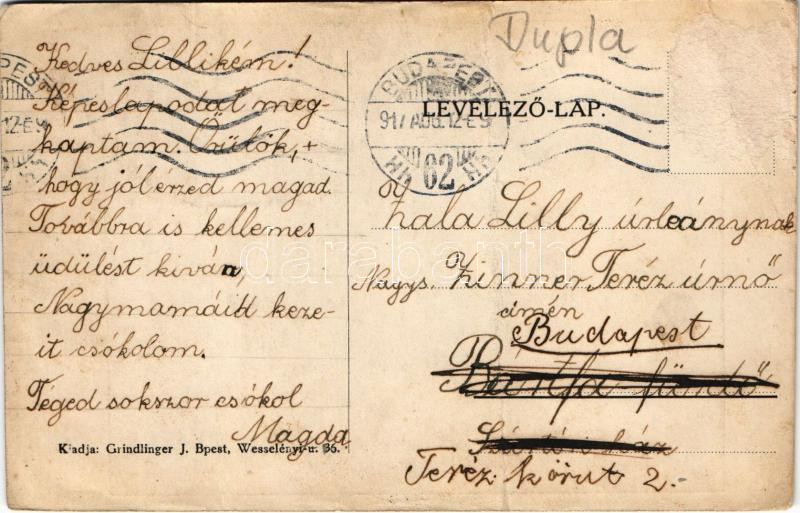 Dupla
LEVELEZŐ-LAP.
BUDAPEST
917 AUG. 12-E9
62
Kedves Lillikém!
Képeslapodat meg-
kaptam. Örülök, +
hogy jól érzed magad.
Továbbra is kellemes
üdülést kiván,
Nagymamáid keze-
it csókolom.
Téged sokszor csókol
Magda
Kiadja: Grindlinger J. Bpest, Wesselényi-u. 36.
Zala Lilly úrleánynak
Nagys. Zinner Teréz úrnő
címén
Budapest
Bártfa-fürdő
ház
Teréz. körut 2.-
darabanth